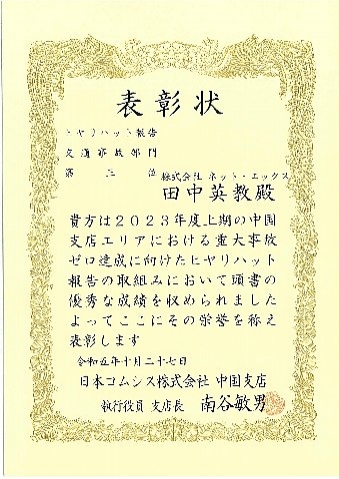 表彰状
ヒヤリハット報告
交通事故部門
第二位
株式会社 ネット・エックス
田中英教殿
貴方は2023年度上期の中国
支店エリアにおける重大事故
ゼロ達成に向けたヒヤリハット
報告の取組みにおいて頭書の
優秀な成績を収められました
よってここにその栄誉を称え
表彰します
令和五年十月二十七日
日本コムシス株式会社 中国支店
執行役員 支店長 南谷敏男